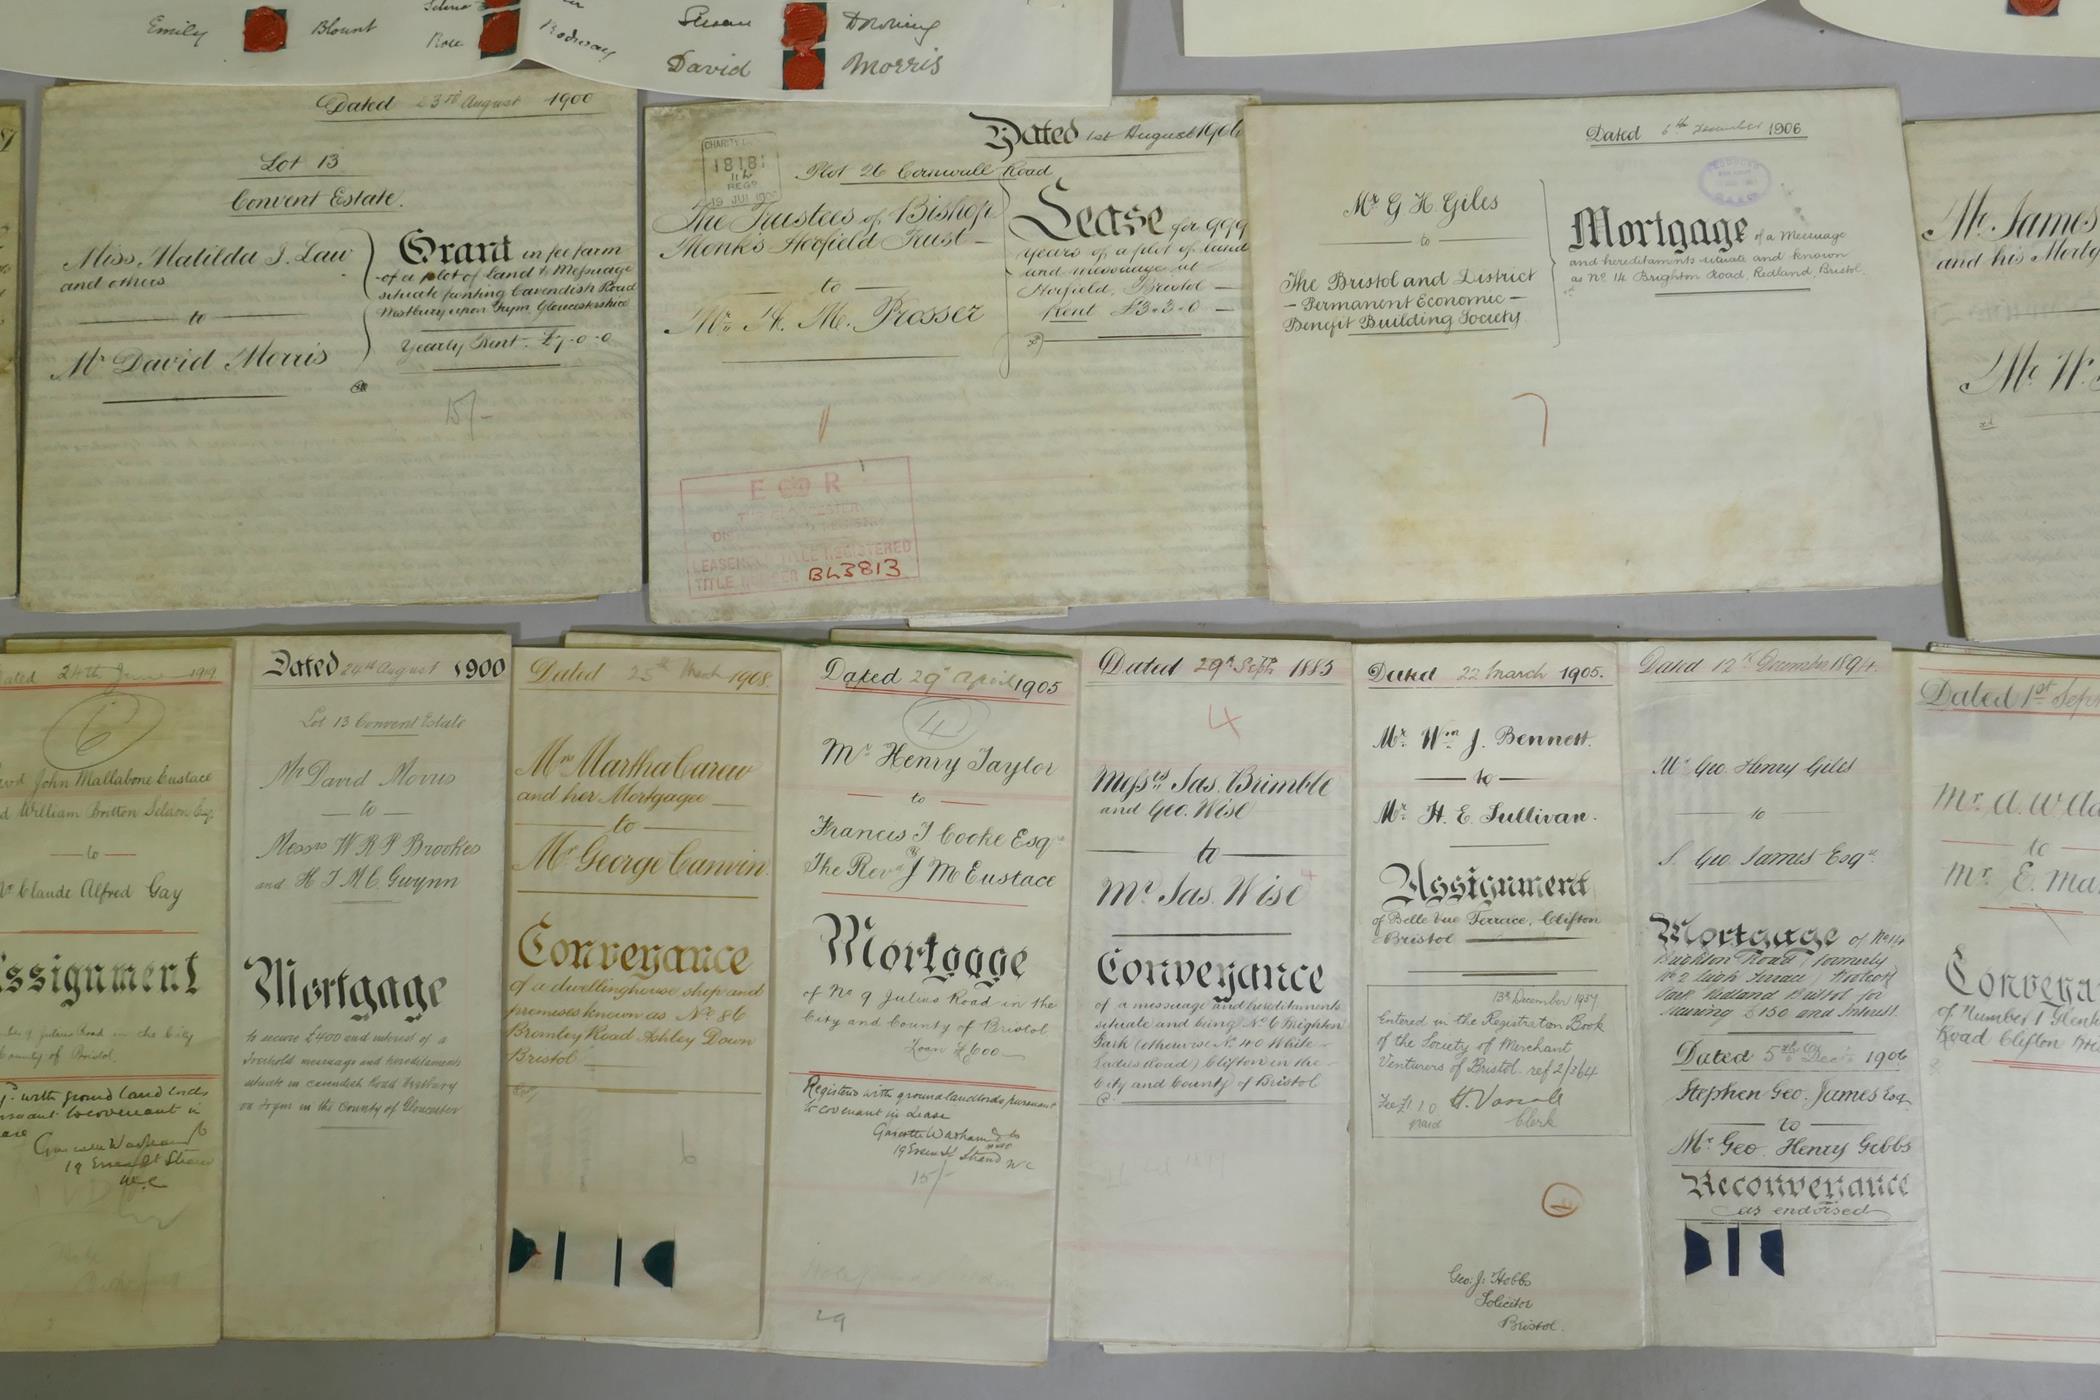 Emily Blount
Rose Rodway
Susan Downing
David Morris
Dated 23rd August 1900
Lot 13
Convent Estate.
Miss Matilda J. Law
and others
to
Mr David Morris
Grant in fee farm
of a plot of land & Messuage
situate fronting Cavendish Road
Westbury upon Trym Gloucestershire
Yearly Rent. £7-0-0
15/-
Dated 1st August 1906
Plot 26 Cornwall Road
18181
REGD
The Trustees of Bishop
Monk's Horfield Trust
to
Mr. H. M. Prosser
Lease for 999
years of a plot of land
and messuage at
Horfield, Bristol
Rent £3-3-0
LEASEHOLD TITLE REGISTERED
TITLE NUMBER BL3813
Dated 6th December 1906
Mr G H Giles
to
The Bristol and District
- Permanent Economic -
Benefit Building Society
Mortgage of a Messuage
and hereditaments situate and known
as No 14 Brighton Road Redland, Bristol.
7
Mr. James
and his Mortg
Mr W.
Dated 24th June 1919
6
John Mallabone Eustace
William Britton
to
Mr Claude Alfred Gay
Assignment
Julius Road in the City
County of Bristol.
with ground landlords
pursuant to covenant in
19 Essex St Strand
W.C
Dated 24th August 1900
Lot 13 Convent Estate
Mr David Morris
to
Messrs W R P Brookes
and H J M C Gwynn
Mortgage
to secure £400 and interest of a
freehold messuage and hereditaments
situate in Cavendish Road Westbury
on Trym in the County of Gloucester
Dated 25th March 1908.
Mrs Martha Carew
and her Mortgagee
to
Mr George Canvin.
Conveyance
of a dwellinghouse shop and
premises known as No 86
Bromley Road Ashley Down
Bristol
6
Dated 29th April 1905
4
Mr Henry Taylor
to
Francis J Cooke Esqre
The Revd J M Eustace
Mortgage
of No 9 Julius Road in the
City and County of Bristol
Loan £600
Registered with ground landlords pursuant
to covenant in Lease
19 Essex St Strand WC
15/-
29
Dated 29th Septr 1883
4
Messrs Jas. Brimble
and Geo. Wise
to
Mr. Jas. Wise
Conveyance
of a messuage and hereditaments
situate and being No 6 Brighton
Park (otherwise No 40 White
Ladies Road) Clifton in the
City and County of Bristol
Dated 22 March 1905.
Mr. Wm J. Bennett.
to
Mr. H. E. Sullivan.
Assignment
of Belle Vue Terrace, Clifton
Bristol
13th December 1937
Entered in the Registration Book
of the Society of Merchant
Venturers of Bristol. ref 2/364
Fee £1 1 0
paid
Clerk
Geo. J. Hobbs
Solicitor
Bristol.
Dated 12th December 1894.
Mr Geo. Henry Giles
to
S. Geo. James Esqre
Mortgage of No 14
Brighton Road, formerly
No 2 Leigh Terrace,
Park Redland Bristol for
securing £150 and Interest.
Dated 5th Decr 1906
Stephen Geo. James Esq
to
Mr Geo. Henry Gibbs
Reconveyance
as endorsed
Dated 1st Sept
Mr. A. W.
to
Mr. E. Ma
Conveyan
of Number 1
Road Clifton Bri